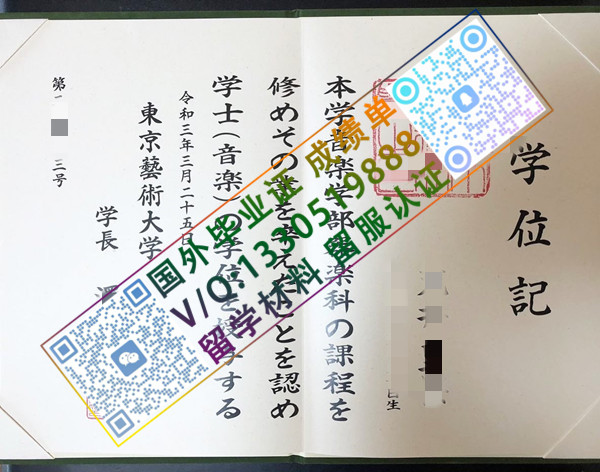 学位記
生
本学音楽学部 楽科の課程を
修めその業を卒えたことを認め
学士(音楽)の学位を授与する
令和三年三月二十五日
東京藝術大学
学長
第 三号
国外毕业证 成绩单
V/Q:1330519888
留学材料 留服认证